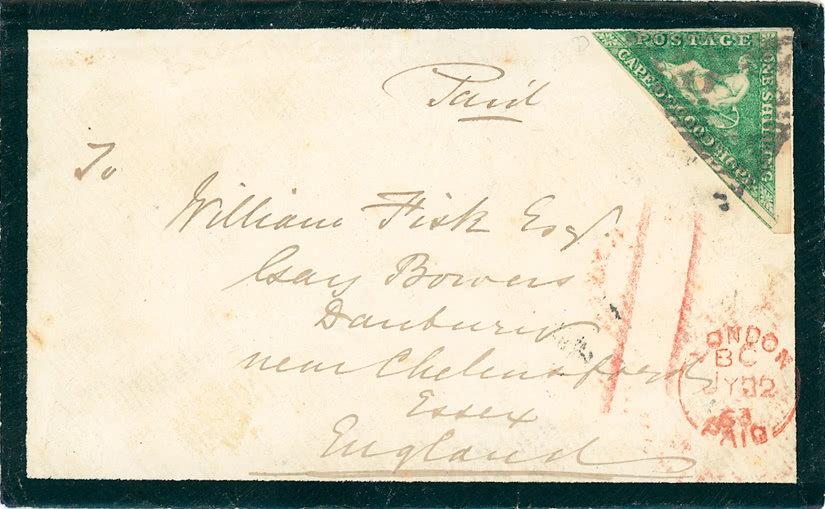 POSTAGE
CAPE OF GOOD HOPE
ONE SHILLING
Paid
To
William Fisk Esqr.
Gay Bowers
Danbury
near Chelmsford
Essex
England
LONDON
BC
JY
63
PAID